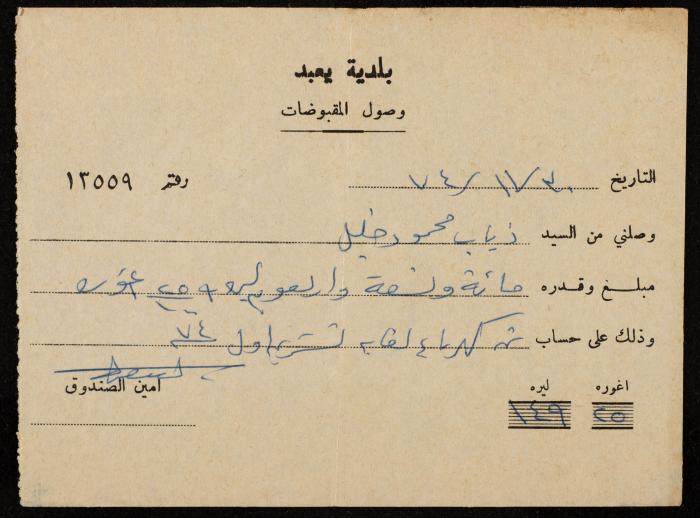 بلدية يعبد
وصول المقبوضات
التاريخ ٣٠/١١/٧٤ رقم ١٣٥٥٩
وصلني من السيد ذياب محمود خليل
مبلغ وقدره مائة وتسعة واربعون ليره و ٢٥ اغوره
وذلك على حساب ثمن كهرباء لغاية تشرين اول ٧٤
اغوره ليره امين الصندوق
٢٥ ١٤٩